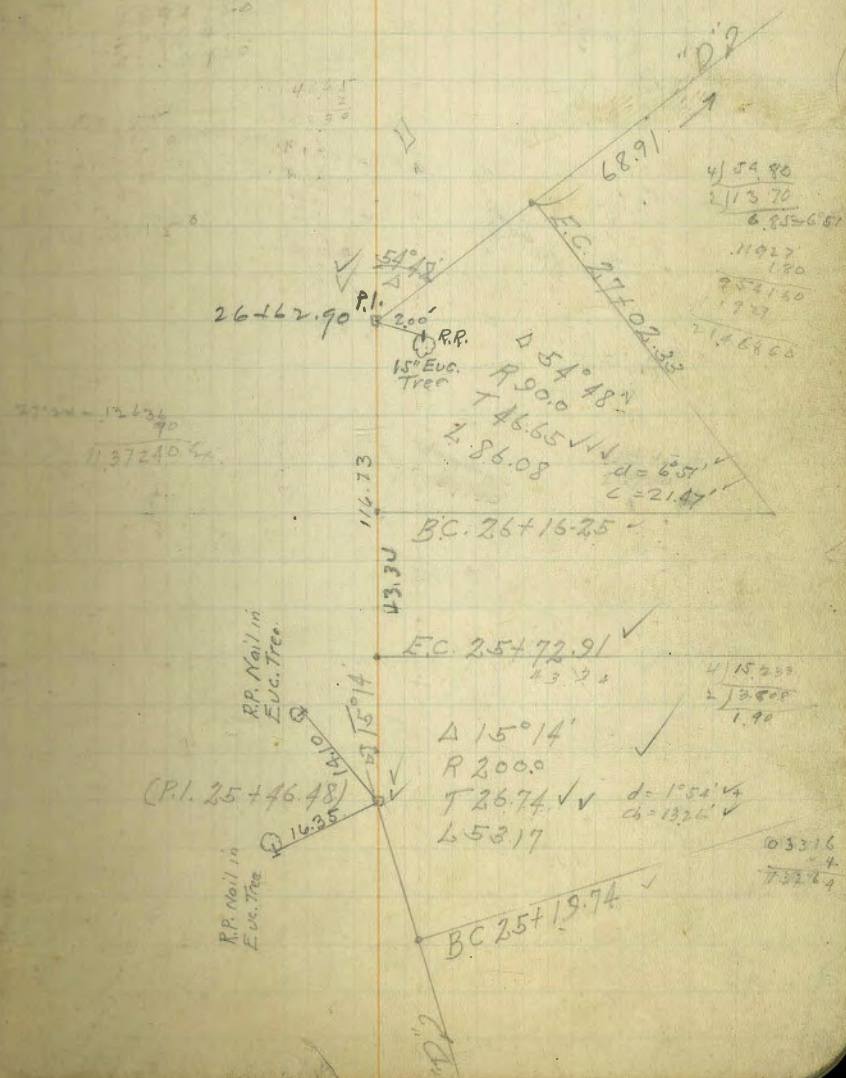 "D"2
68.91
4) 54.80
2) 13 70
6.85=6°51
.11927
180
954160
1 9 2 7
21.46860
54°48'
Δ
P.I.
26+62.90
2.00'
R.R.
15" Euc.
Tree
E.C. 27+02.33
Δ 54°48'
R 90.0
T 46.65 ✓✓✓
L 86.08
d = 6°51' ✓
C = 21.47' ✓
12636
90
11.37240
116.73
B.C. 26+16.25
43.34
E.C. 25+72.91 ✓
R.P. Nail in
Euc. Tree
14.10
Δ 15°14'
4) 15.233
2) 3.808
1.90
Δ 15°14'
R 200.0
T 26.74 ✓✓
L 53.17
d = 1°54' ✓
Ch = 13.26' ✓
(P.I. 25+46.48)
16.35
R.P. Nail in
Euc. Tree
03316
4
13264
BC 25+19.74 ✓
"D"2